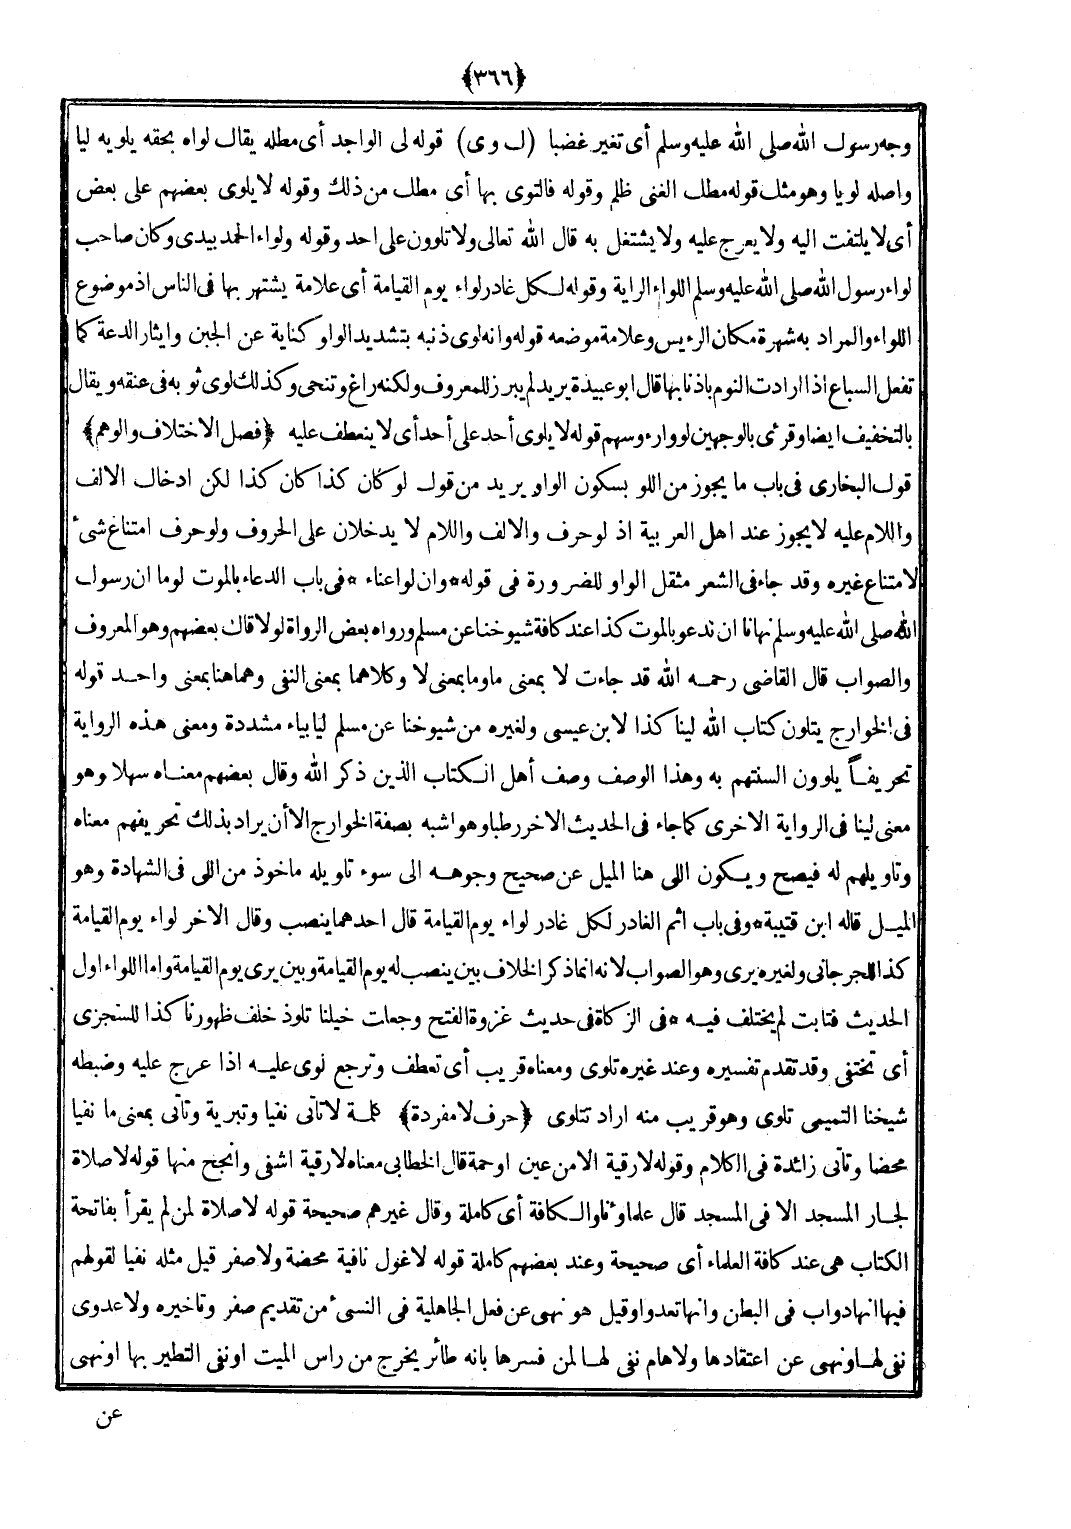 ﴿٣٦٦﴾
وجه رسول الله صلى الله عليه وسلم أى تغير غضبا (ل وى) قوله لى الواجد أى مطله يقال لواه بحقه يلويه ليا
واصله لويا وهو مثل قوله مطل الغنى ظلم وقوله فالتوى بها أى مطل من ذلك وقوله لا يلوى بعضهم على بعض
أى لا يلتفت اليه ولا يعرج عليه ولا يشتغل به قال الله تعالى ولا تلوون على احد وقوله ولواء الحمد بيدى وكان صاحب
لواء رسول الله صلى الله عليه وسلم اللواء الراية وقوله لكل غادر لواء يوم القيامة أى علامة يشتهر بها فى الناس اذ موضوع
اللواء والمراد به شهرة مكان الرءيس وعلامة موضعه قوله وانه لوى ذنبه بتشديد الواو كناية عن الجبن وايثار الدعة كما
تفعل السباع اذا ارادت النوم باذنابها قال ابو عبيدة يريد لم يبرز للمعروف ولكنه راغ وتنحى وكذلك لوى ثوبه فى عنقه ويقال
بالتخفيف ايضا وقرئ بالوجهين لووا رءوسهم قوله لا يلوى أحد على أحد أى لا ينعطف عليه ﴿فصل الاختلاف والوهم﴾
قول البخارى فى باب ما يجوز من اللو بسكون الواو يريد من قول لو كان كذا كان كذا لكن ادخال الالف
واللام عليه لا يجوز عند اهل العربية اذ لو حرف والالف واللام لا يدخلان على الحروف ولو حرف امتناع شئ
لامتناع غيره وقد جاء فى الشعر مثقل الواو للضرورة فى قوله * وان لوا عناء * فى باب الدعاء بالموت لوما ان رسول
الله صلى الله عليه وسلم نهانا ان ندعو بالموت كذا عند كافة شيوخنا عن مسلم ورواه بعض الرواة لولا قاك بعضهم وهو المعروف
والصواب قال القاضى رحمه الله قد جاءت لا بمعنى ما وما بمعنى لا وكلاهما بمعنى النفى وهما هنا بمعنى واحد قوله
فى الخوارج يتلون كتاب الله لينا كذا لابن عيسى ولغيره من شيوخنا عن مسلم ليا بياء مشددة ومعنى هذه الرواية
تحريفاً يلوون السنتهم به وهذا الوصف وصف أهل الكتاب الذين ذكر الله وقال بعضهم معناه سهلا وهو
معنى لينا فى الرواية الاخرى كما جاء فى الحديث الاخر رطبا وهو اشبه بصفة الخوارج الا أن يراد بذلك تحريفهم معناه
وتاويلهم له فيصح ويكون اللى هنا الميل عن صحيح وجوهه الى سوء تاويله ماخوذ من اللى فى الشهادة وهو
الميل قاله ابن قتيبة * وفى باب اثم الغادر لكل غادر لواء يوم القيامة قال احدهما ينصب وقال الاخر لواء يوم القيامة
كذا للجرجانى ولغيره يرى وهو الصواب لانه انما ذكر الخلاف بين ينصب له يوم القيامة وبين يرى يوم القيامة واما اللواء اول
الحديث فثابت لم يختلف فيه * فى الزكاة فى حديث غزوة الفتح وجعلت خيلنا تلوذ خلف ظهورنا كذا للسنجزى
أى تختفى وقد تقدم تفسيره وعند غيره تلوى ومعناه قريب أى تعطف وترجع لوى عليه اذا عرج عليه وضبطه
شيخنا التميمى تلوى وهو قريب منه اراد تتلوى ﴿حرف لا مفردة﴾ كلمة لا تأتى نفيا وتبرية وتأتى بمعنى ما نفيا
محضا وتأتى زائدة فى الكلام وقوله لا رقية الا من عين او حمة قال الخطابى معناه لا رقية اشفى وانجح منها قوله لا صلاة
لجار المسجد الا فى المسجد قال علماؤنا والكافة أى كاملة وقال غيرهم صحيحة قوله لا صلاة لمن لم يقرأ بفاتحة
الكتاب هى عند كافة العلماء أى صحيحة وعند بعضهم كاملة قوله لا غول نافية محضة ولا صفر قيل مثله نفيا لقولهم
فيها انها دواب فى البطن وانها تعدو وقيل هو نهى عن فعل الجاهلية فى النسئ من تقديم صفر وتاخيره ولا عدوى
نفى لها ونهى عن اعتقادها ولا هام نفى لها لمن فسرها بانه طائر يخرج من راس الميت او نفى التطير بها او نهى
عن